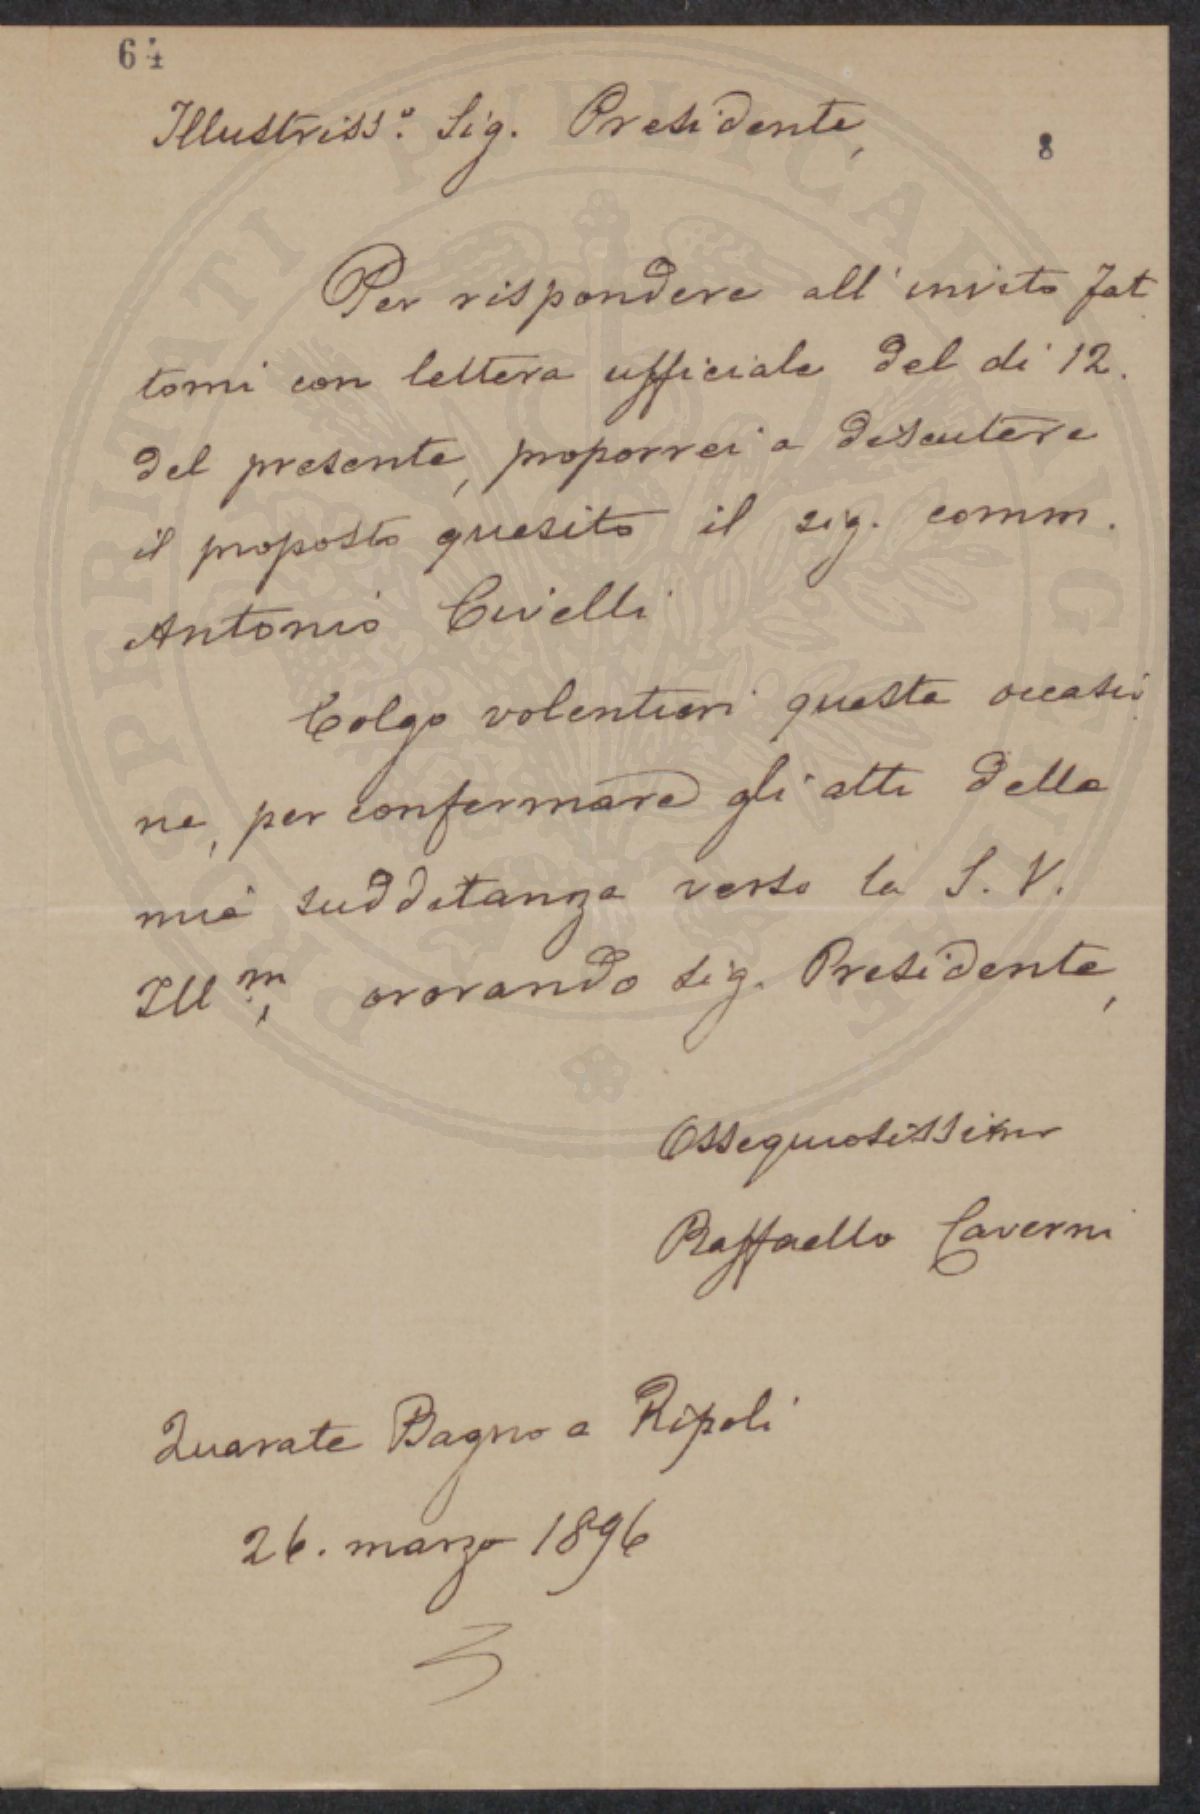 64
Illustriss.º Sig. Presidente,
8
Per rispondere all'invito fat
tomi con lettera ufficiale del dì 12.
del presente, proporrei a discutere
il proposto quesito il sig. comm.
Antonio Civelli
Colgo volentieri questa occasio
ne, per confermare gli atti della
mia sudditanza verso la S. V.
Ill.m, onorando sig. Presidente,
Ossequiosissimo
Raffaello Caverni
Quarate Bagno a Ripoli
26. marzo 1896
PROSPERITATI PUBLICAE AUGENDAE